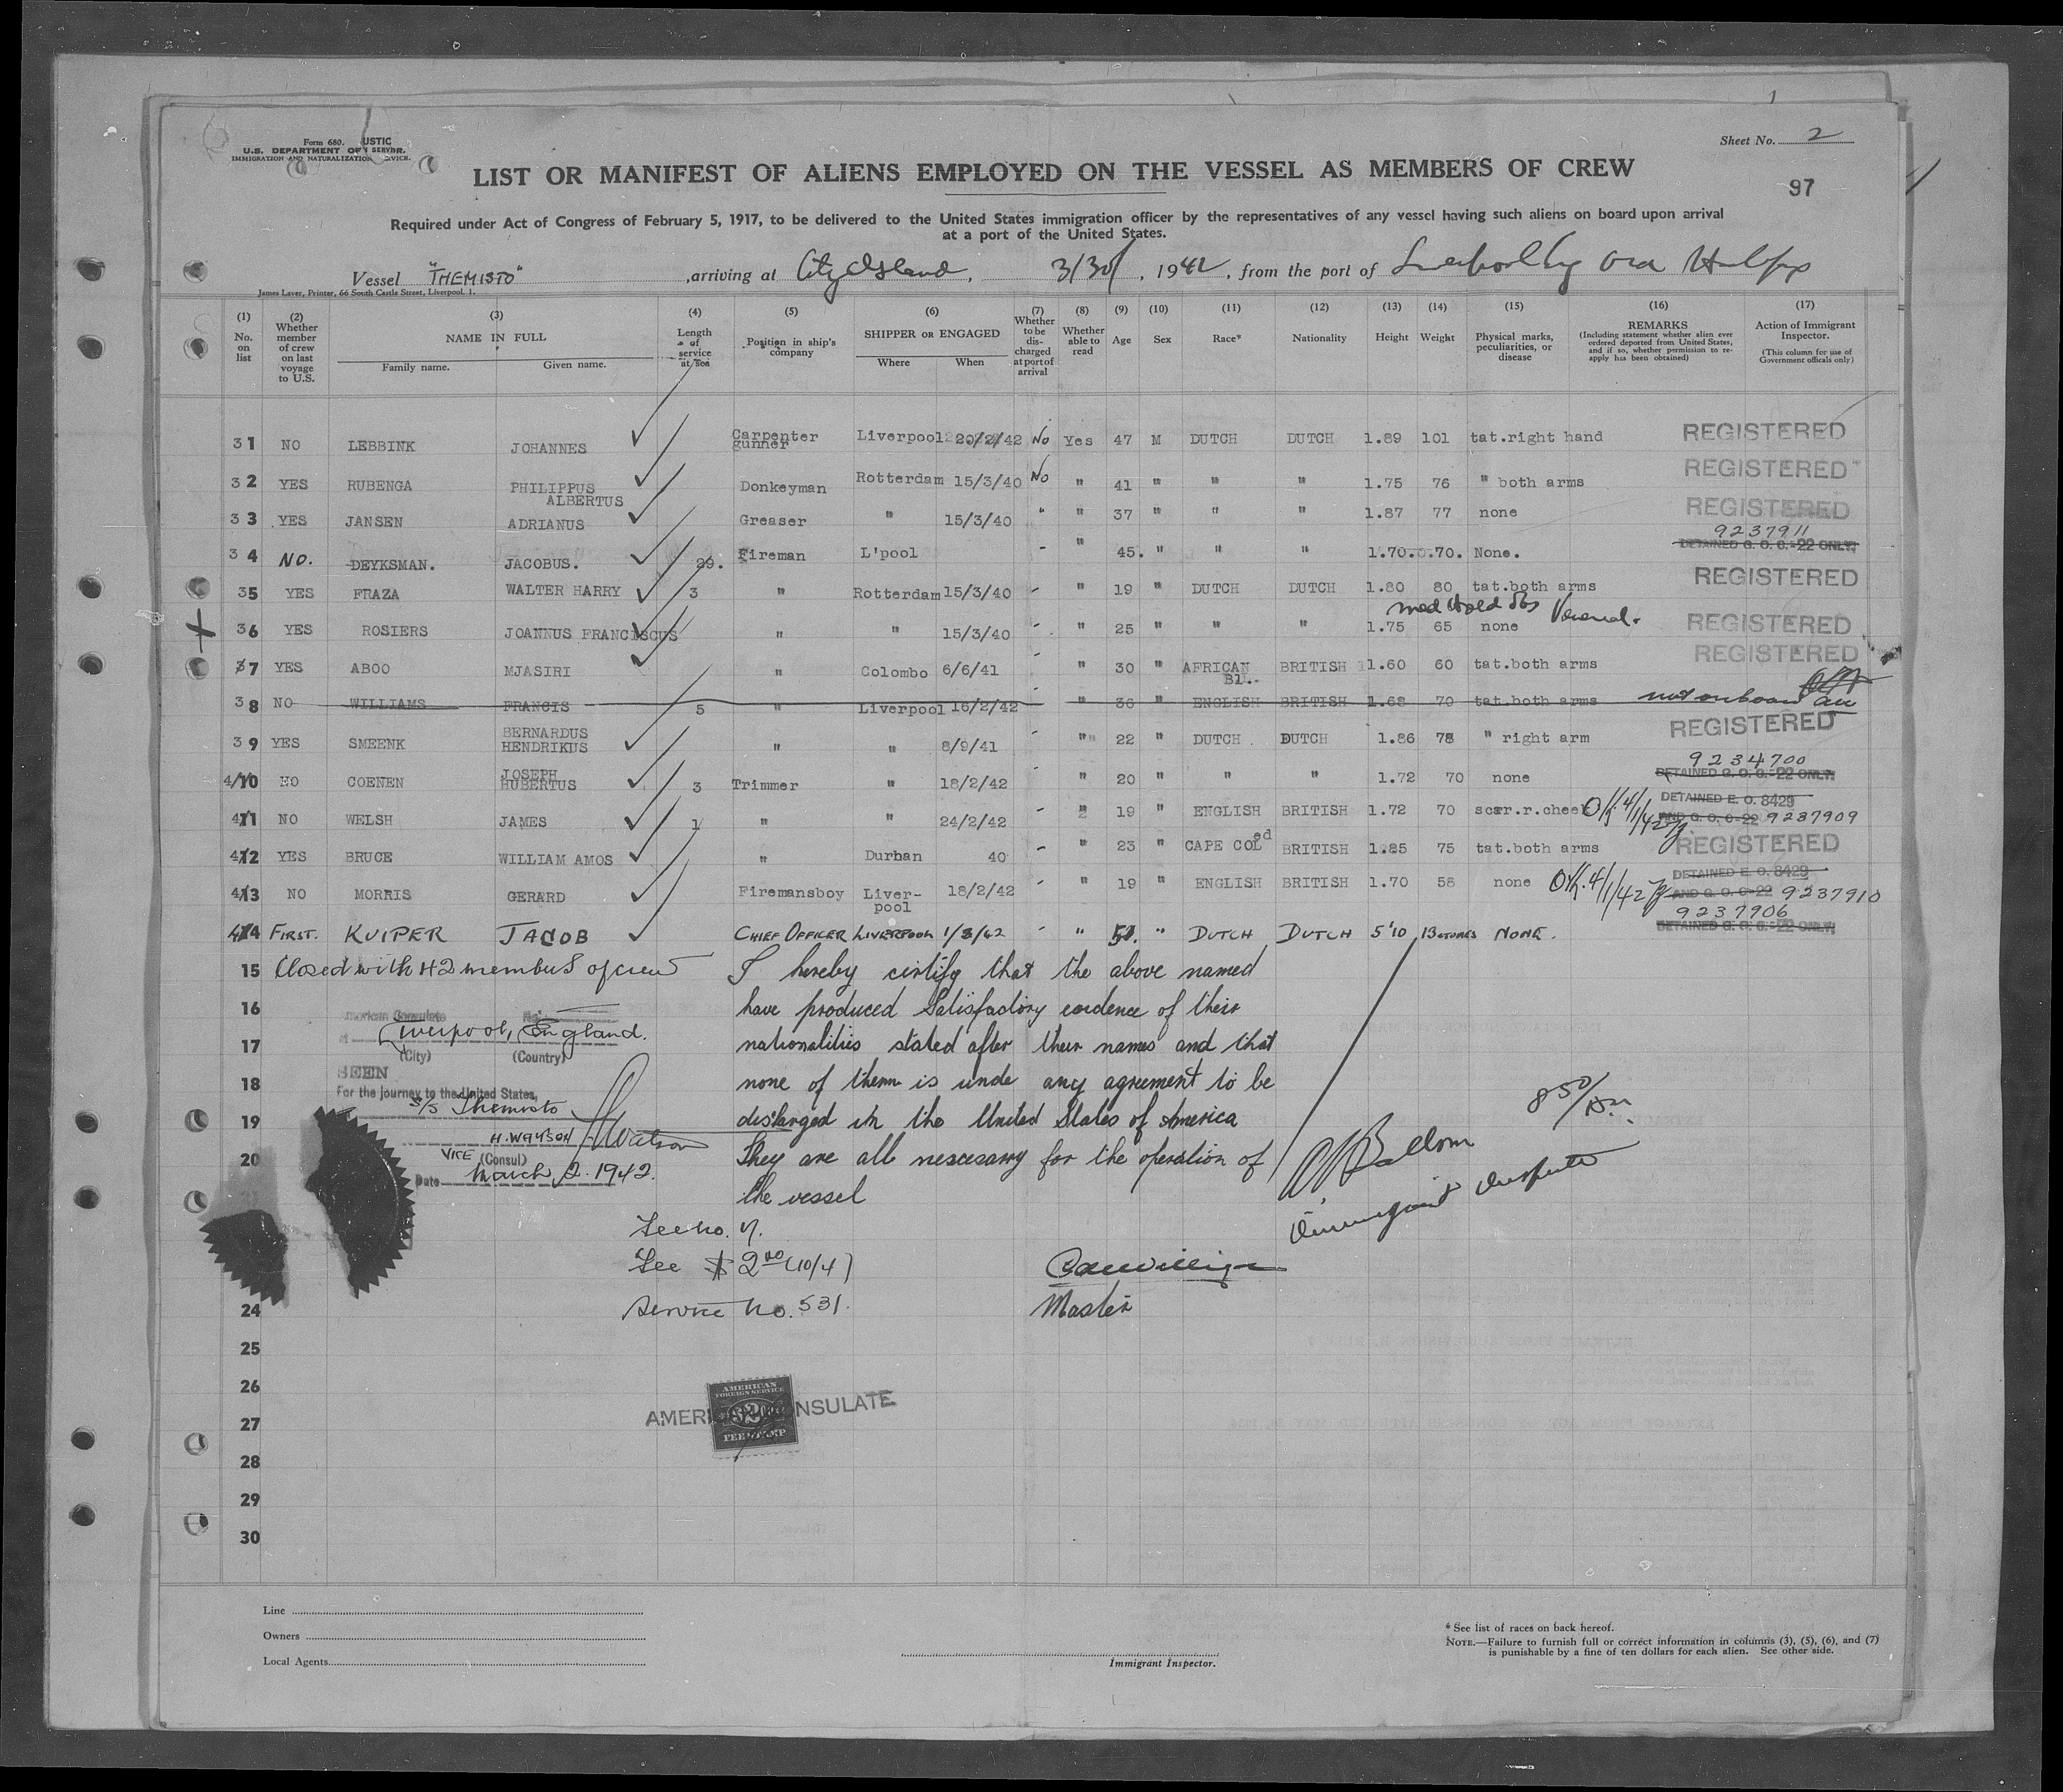 Form 680. USTIC
U.S. DEPARTMENT OF
IMMIGRATION AND NATURALIZATION
Sheet No. 2
LIST OR MANIFEST OF ALIENS EMPLOYED ON THE VESSEL AS MEMBERS OF CREW
97
Required under Act of Congress of February 5, 1917, to be delivered to the United States immigration officer by the representatives of any vessel having such aliens on board upon arrival
at a port of the United States.
Vessel "THEMISTO" , arriving at City Island , 3/30/ , 1942 , from the port of
James Laver, Printer, 66 South Castle Street, Liverpool. 1.
(1) No. on list
(2) Whether member of crew on last voyage to U.S.
(3) NAME IN FULL Family name. Given name.
(4) Length of service at sea
(5) Position in ship's company
(6) SHIPPER OR ENGAGED Where When
(7) Whether to be discharged at port of arrival
(8) Whether able to read
(9) Age
(10) Sex
(11) Race*
(12) Nationality
(13) Height
(14) Weight
(15) Physical marks, peculiarities, or disease
(16) REMARKS (Including statement whether alien ever ordered deported from United States, and if so, whether permission to reapply has been obtained)
(17) Action of Immigrant Inspector. (This column for use of Government officials only)
31 NO LEBBINK JOHANNES Carpenter gunner Liverpool 20/2/42 No Yes 47 M DUTCH DUTCH 1.89 101 tat.right hand REGISTERED
32 YES RUBENGA PHILIPPUS ALBERTUS Donkeyman Rotterdam 15/3/40 No " 41 " " " 1.75 76 " both arms REGISTERED
33 YES JANSEN ADRIANUS Greaser " 15/3/40 " " 37 " " " 1.87 77 none REGISTERED
34 NO. DEYKSMAN. JACOBUS. 29. Fireman L'pool - " 45. " " " 1.70. 70. None. 9237911 DETAINED G. O. C.-22 ONLY;
35 YES FRAZA WALTER HARRY 3 " Rotterdam 15/3/40 - " 19 " DUTCH DUTCH 1.80 80 tat.both arms REGISTERED
Med Hold Obs Venereal.
36 YES ROSIERS JOANNUS FRANCISCUS " " 15/3/40 - " 25 " " " 1.75 65 none REGISTERED
37 YES ABOO MJASIRI " Colombo 6/6/41 - " 30 " AFRICAN Bl. BRITISH 1.60 60 tat.both arms REGISTERED
38 NO WILLIAMS FRANCIS 5 " Liverpool 16/2/42 - " 36 " ENGLISH BRITISH 1.68 70 tat.both arms not on board
39 YES SMEENK BERNARDUS HENDRIKUS " " 8/9/41 - " 22 " DUTCH DUTCH 1.86 78 " right arm REGISTERED
4/10 NO COENEN JOSEPH HUBERTUS 3 Trimmer " 18/2/42 " 20 " " " 1.72 70 none 9234700 DETAINED G. O. C.-22 ONLY;
411 NO WELSH JAMES 1 " " 24/2/42 - " 19 " ENGLISH BRITISH 1.72 70 scar.r.cheek DETAINED E. O. 8429 AND G. O. C-22 9237909
412 YES BRUCE WILLIAM AMOS " Durban 40 - " 23 " CAPE COLed BRITISH 1.85 75 tat.both arms REGISTERED
413 NO MORRIS GERARD Firemansboy Liver-pool 18/2/42 - " 19 " ENGLISH BRITISH 1.70 58 none DETAINED E. O. 8429 AND G. O. C-22 9237910
414 FIRST. KUIPER JACOB CHIEF OFFICER LIVERPOOL 1/3/42 - " 51. " DUTCH DUTCH 5'10 13 STONES NONE. 9237906 DETAINED G. O. C.-22 ONLY;
15 Closed with 42 members of crew
I hereby certify that the above named
16 have produced Satisfactory evidence of their
American Consulate
Liverpool, England.
17 (City) (Country)
nationalities stated after their names and that
SEEN
18 none of them is unde any agreement to be
For the journey to the United States,
S/S Themisto
19 discharged in the United States of America
H. WATSON
20 They are all nescesarry for the operation of
VICE (Consul)
Date March 2. 1942.
21 the vessel
Fee $ 2.00 (10/4)
Service No. 531.
Master
Immigrant Inspector
24
25
26
AMERICAN FOREIGN SERVICE
AMERICAN CONSULATE
FEE STAMP
27
28
29
30
Line
Owners
Local Agents
Immigrant Inspector.
* See list of races on back hereof.
NOTE.—Failure to furnish full or correct information in columns (3), (5), (6), and (7)
is punishable by a fine of ten dollars for each alien. See other side.